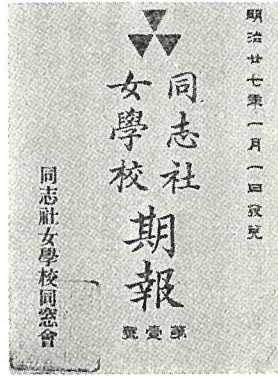 明治廿七年一月一日發兌
同志社
女學校
期報
第壹號
同志社女學校同窓會